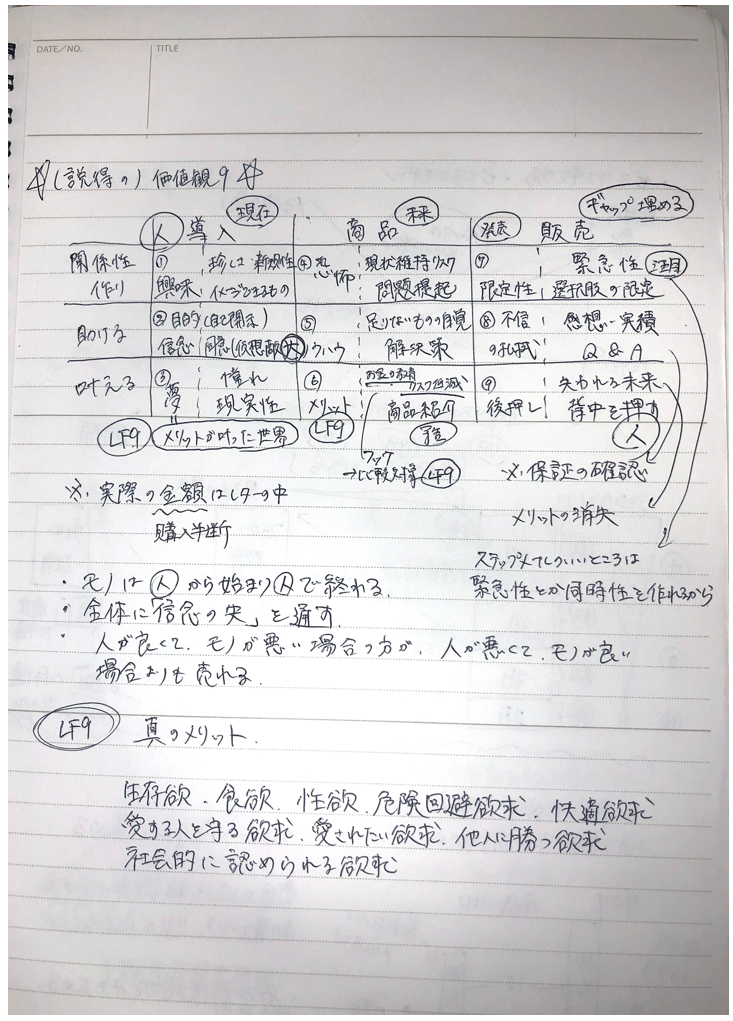 DATE/NO.
TITLE
☆(説得の)価値観9☆
現在
未来
ギャップ埋める
人 導入
商品
発売 販売
関係性
作り
① 珍しい 新規性
興味 イメージできるもの
④恐怖 現状維持リスク
問題提起
⑦ 緊急性 注目
限定性 選択肢の限定
助ける
②目的(自己開示)
信念 同念(仮想敵 大)
⑤ 足りないものの自覚
ノウハウ 解決策
⑧不信 感想・実績
の払拭 Q & A
叶える
③ 憧れ
夢 現実性
⑥ お金の リスク軽減
メリット 商品紹介
⑨ 失われる未来
後押し 背中を押す
LF9 メリットが叶った世界
LF9
人
フック
→比較対象 LF9
※ 保証の確認
メリットの消失
※ 実際の金額はレターの中
購入判断
ステップメールのいいところは
緊急性とか同時性を作れるから
・モノは人から始まり人で終わる。
・全体に「信念の矢」を通す
・人が良くて、モノが悪い場合の方が、人が悪くて、モノが良い
場合よりも売れる。
LF9 真のメリット.
生存欲、食欲、性欲、危険回避欲求、快適欲求
愛する人を守る欲求、愛されたい欲求、他人に勝つ欲求
社会的に認められる欲求